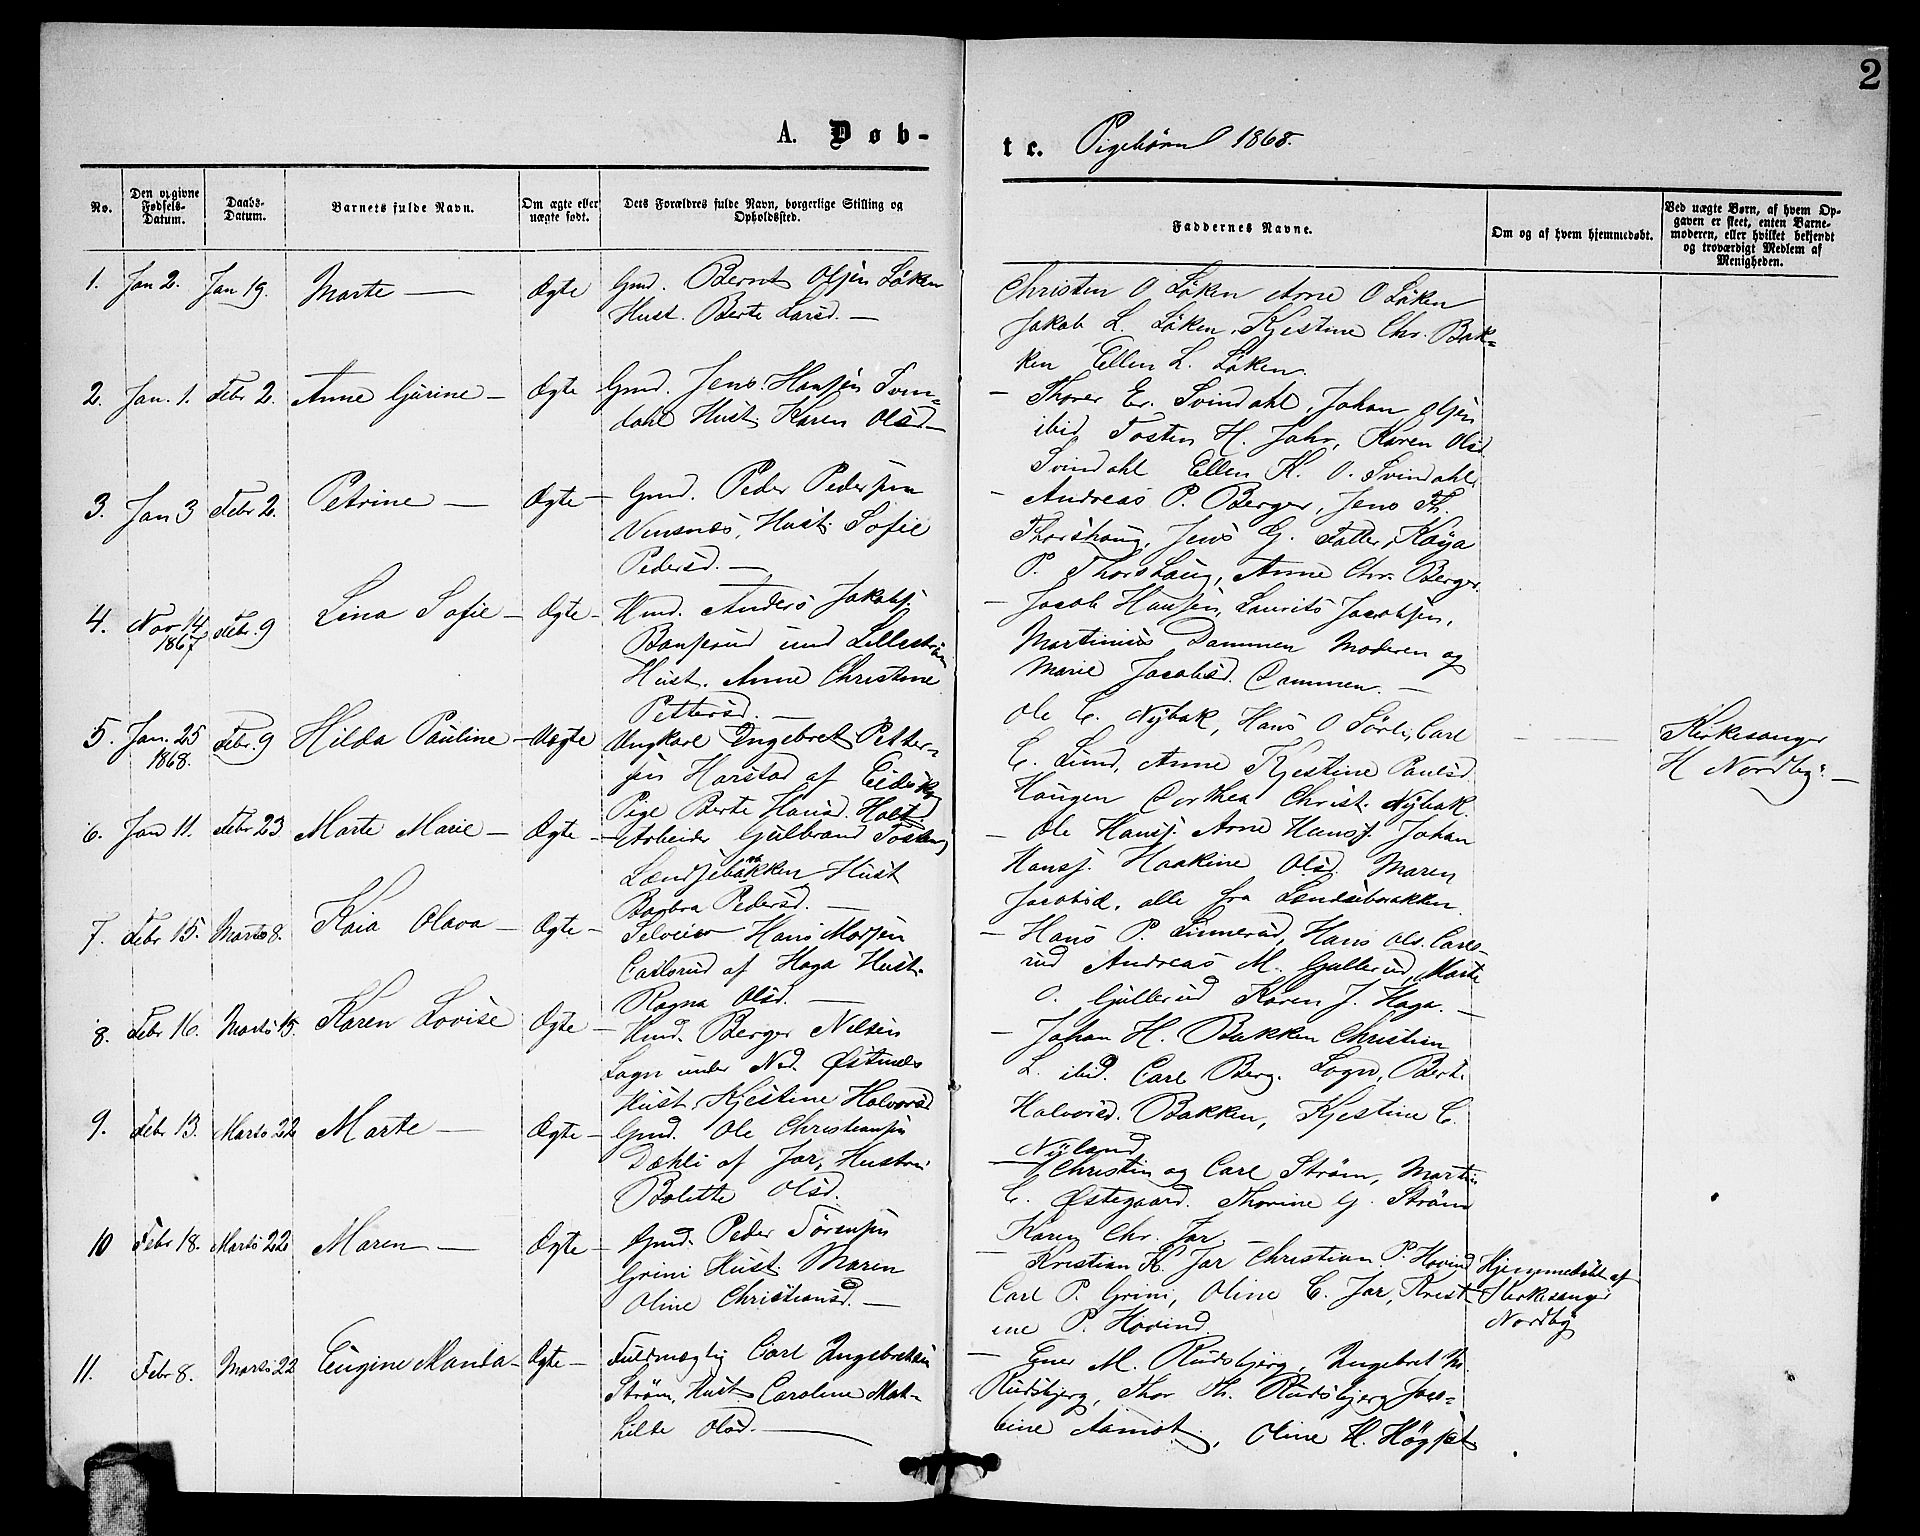 2
A. Døb-
te. Pigebørn 1868.
No.
Den opgivne Fødsels-Datum.
Daabs-Datum.
Barnets fulde Navn.
Om ægte eller uægte født.
Dets Forældres fulde Navn, borgerlige Stilling og Opholdssted.
Faddernes Navne.
Om og af hvem hjemmedøbt.
Ved uægte Børn, af hvem Opgaven er skeet, enten Barnemoderen, eller hvilket bekjendt og troværdigt Medlem af Menigheden.
1. Jan 2. Jan 19. Marte — Ægte
Gmd. Bernt Olsen Løken
Hust. Berte Larsd. —
Christen O Løken Arne O Løken
Jakob L. Løken, Kjestine Chr. Bak-
ken Ellen L. Løken.
2. Jan. 1. Febr 2. Anne Gurine — Ægte
Gmd. Jens Hansen Svin-
dahl Hust. Karen Olsd —
— Thorer Er. Svindahl, Johan Olsen
ibid, Tosten H. Jahr, Karen Olsd
Svindahl Ellen K. O. Svindahl
3. Jan 3 Febr 2. Petrine — Ægte —
Gmd. Peder Pedersen
Vensnæs, Hust. Sofie
Pedersd. —
— Andreas P. Berger, Jens Th.
Thorshaug, Jens G. Fatter, Kaja
P. Thorshaug, Anne Chr. Berger
4. Nov. 14 1867 Febr. 9 Lina Sofie — Ægte —
Hmd. Anders Jakobs.
und Lillestrøm
Hust. Anne Christine
Pettersd. —
— Jacob Hansen, Laurits Jacobsen,
Martinius Dammen Moderen og
Marie Jacobsd. Dammen. —
5. Jan. 25 1868. Febr. 9 Hilda Pauline — Uægte
Ungkarl Ingebret Petter-
sen Harstad af Eidskog
Pige Berte Hansd. Holt
Ole C. Nybak, Hans O Sørli, Carl
C. Lund, Anne Kjestine Paulsd.
Haugen Dorthea Christ. Nybak.
Kirkesanger
H Nordby. —
6. Jan 11. Febr 23 Marte Marie — Ægte —
Arbeider Gulbrand Tosten
Lændsebakken Hust
Barbra Pedersd. —
— Ole Hanss. Arne Hanss. Johan
Hanss. Haakine Olsd. Maren
Jacobsd. alle fra Lændsebakken.
7. Febr 15. Marts 8. Kaia Olava — Ægte —
Selveier Hans Morsen
Carlsrud af Haga Hust.
Ragna Olsd. —
— Hans P. Linnerud, Hans Ols. Carls-
rud Andreas M. Gullerud, Marte
O. Gullerud Karen J. Haga. —
8. Febr 16. Marts 15. Karen Lovise Ægte —
Hmd. Berger Nilsen
Logn under Nd. Østnæs
Hust. Kjestine Halvorsd
— Johan H. Bakken Christian
L. ibid. Carl Berg. Logn, Bert.
Halvorsd. Bakken, Kjestine C.
Nyland
9. Febr 13. Marts 22 Marte — Ægte —
Gmd. Ole Christiansen
Dæhli af Jar, Hustru
Bolette Olsd.
— Christin og Carl Strøm, Martin
C. Østegaard. Thorine G. Strøm
Karen Chr. Jar. —
10 Febr 18. Marts 22 Maren — Ægte —
Gmd. Peder Sørensen
Grini Hust. Maren
Oline Christiansd. —
— Kristian K. Jar Christian P. Hovind
Carl P. Grini, Oline C. Jar, Krist-
ine P. Hovind
Hjemmedøbt af
Kirkesanger
Nordby
11. Febr 8. Marts 22 Eugine Manda — Ægte —
Fuldmægtig Carl Ingebretsen
Strøm, Hust. Caroline Mat-
hilde Olsd. —
— Ener M. Rudsbjerg, Ingebret M.
Rudsbjerg, Thor Th. Rudsbjerg Jaco-
bine Aamot, Oline H. Høgset